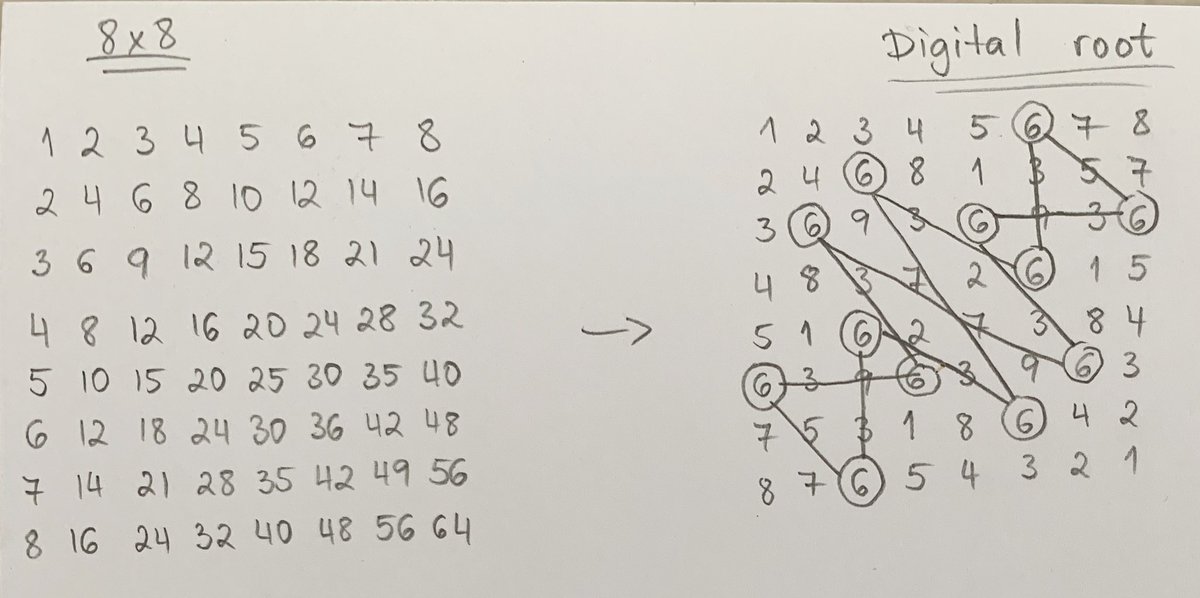 8x8
1 2 3 4 5 6 7 8
2 4 6 8 10 12 14 16
3 6 9 12 15 18 21 24
4 8 12 16 20 24 28 32
5 10 15 20 25 30 35 40
6 12 18 24 30 36 42 48
7 14 21 28 35 42 49 56
8 16 24 32 40 48 56 64
→
Digital root
1 2 3 4 5 6 7 8
2 4 6 8 1 3 5 7
3 6 9 3 6 9 3 6
4 8 3 7 2 6 1 5
5 1 6 2 7 3 8 4
6 3 9 6 3 9 6 3
7 5 3 1 8 6 4 2
8 7 6 5 4 3 2 1